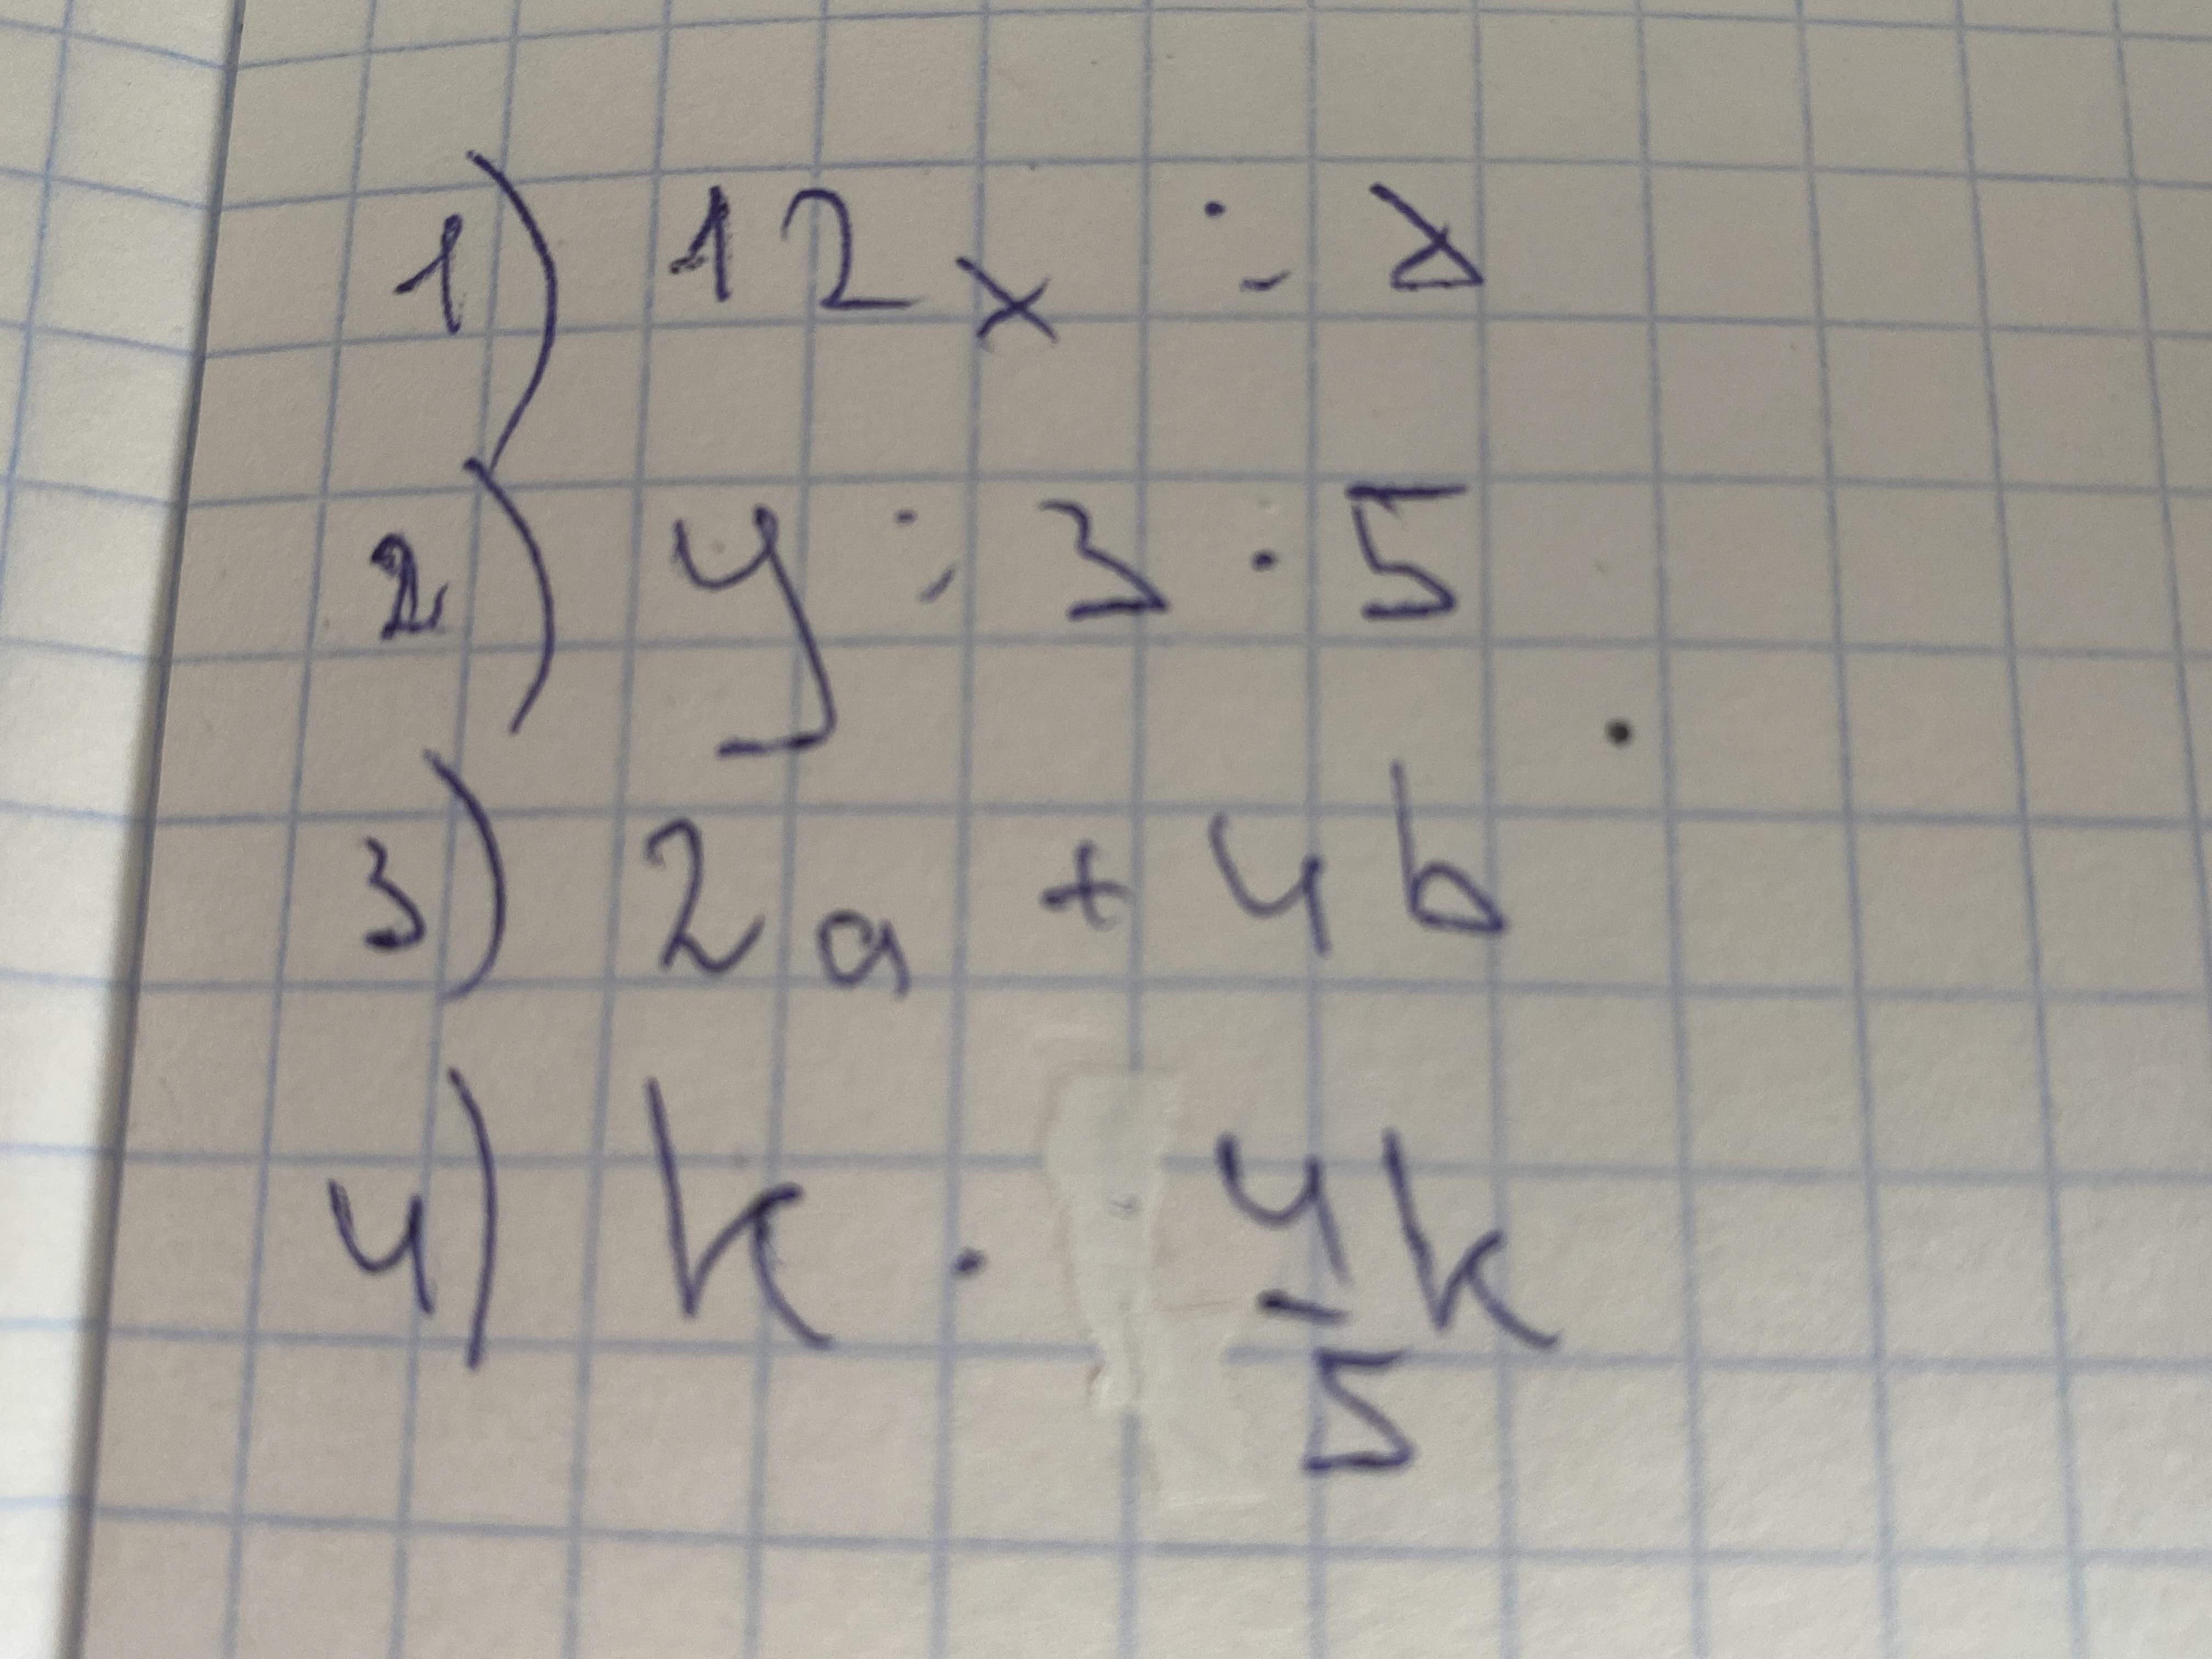 1) 12x : x
2) y : 3 · 5
3) 2a + 4b
4) k · 4/5 k